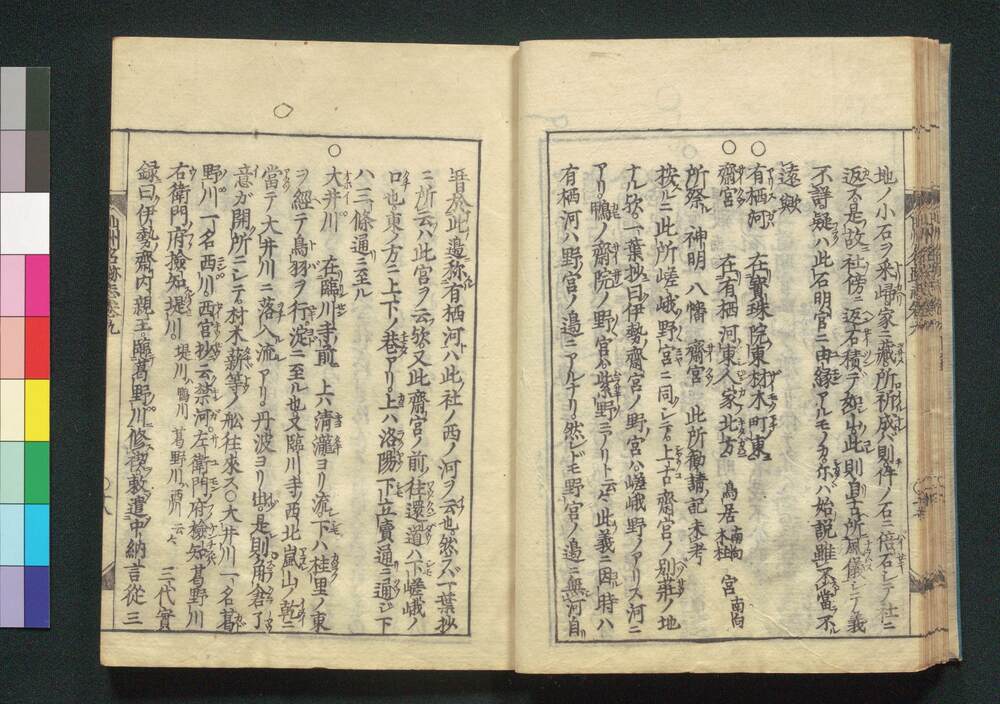 地ノ小石ヲ来帰家ニ蔵所祈成バ則件ノ石ニ倍石シテ社ニ
返ス是故社傍ニ返石積テ如山此則皇古所風儀ニシテ義
不詳疑ハ此石明宮ニ由縁アルモノカ尓バ始説雖不當不
遠歟
○有栖河 在寳珠院東材木町東
○齋宮 在有栖河東人家北方 鳥居南向木柱 宮南向
所祭神明八幡齋宮 此所勧請記未考
按ズルニ此所嵯峨野ノ宮ニ同シテ上古齋宮ノ別莊ノ地
ナル歟一葉抄曰伊勢ノ齋宮ノ野宮ハ嵯峨野ノアリス河ニ
アリ鴨ノ齋院ノ野宮ハ紫野ニアリト云云此義ニ因ル時ハ
有栖河ハ野宮ノ邉ニアルナリ然レドモ野宮ノ邉ニ無河自
昔於此邉称有栖河ハ此ノ社ノ西ノ河ヲ云也然ズバ一葉抄
ニ所云ハ此宮ヲ云歟又此齋宮ノ前ノ往還道ハ下嵯峨ノ
口也東ノ方ニ上下ノ巷アリ上ハ洛陽下立賣通ニ通ジ下
ハ三條通ニ至ル
○大井川 在臨川寺前 上六清瀧ヨリ流下ハ桂里ノ東
ヲ經テ鳥羽ヲ行淀ニ至ル也又臨川寺ノ西北嵐山ノ乾ニ
當テ大井川ニ落入流アリ丹波ヨリ出是則角倉了
意ガ開所ニシテ材木薪等ノ舩往來ス○大井川一名葛
野川一名西川西宮抄云禁河左衛門府檢知葛野川
右衛門府撿知堤川 堤川ハ鴨川葛野川ハ西云々 三代實
録曰伊勢齋内親王臨葛野川修禊敷遣中納言從三
山州名跡志巻九